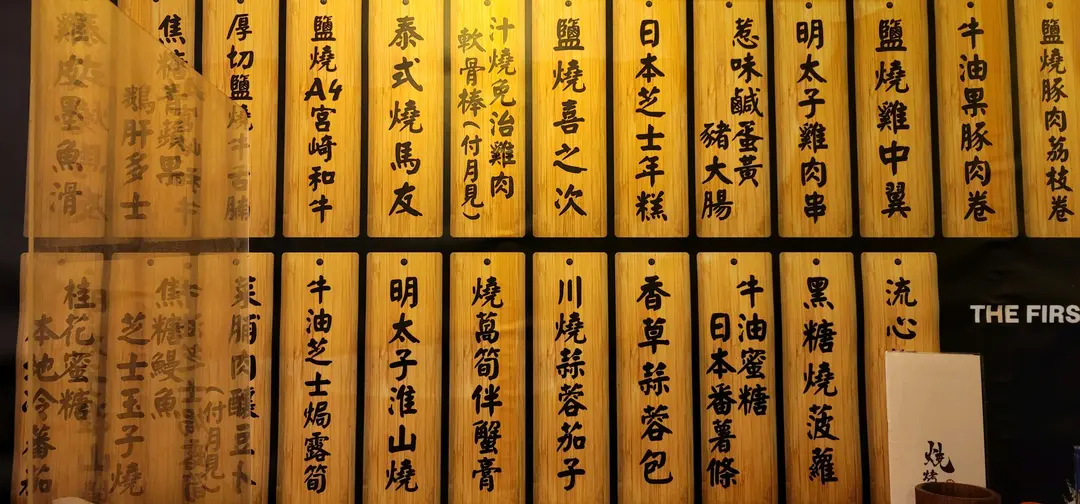 鹽燒豚肉荔枝卷
牛油果豚肉卷
鹽燒雞中翼
明太子雞肉串
惹味鹹蛋黃
豬大腸
日本芝士年糕
鹽燒喜之次
汁燒免治雞肉
軟骨棒(付月見)
泰式燒馬友
鹽燒A4宮崎和牛
厚切鹽燒牛舌腩
焦糖青蘋果
鵝肝多士
皮墨魚滑
流心
黑糖燒菠蘿
牛油蜜糖
日本番薯條
香草蒜蓉包
川燒蒜蓉茄子
燒萵筍伴蟹膏
明太子淮山燒
牛油芝士焗露筍
菜脯肉釀豆卜
(付月見)
焦糖鰻魚
芝士玉子燒
桂花蜜糖
本地冷番茄
THE FIRS
燒